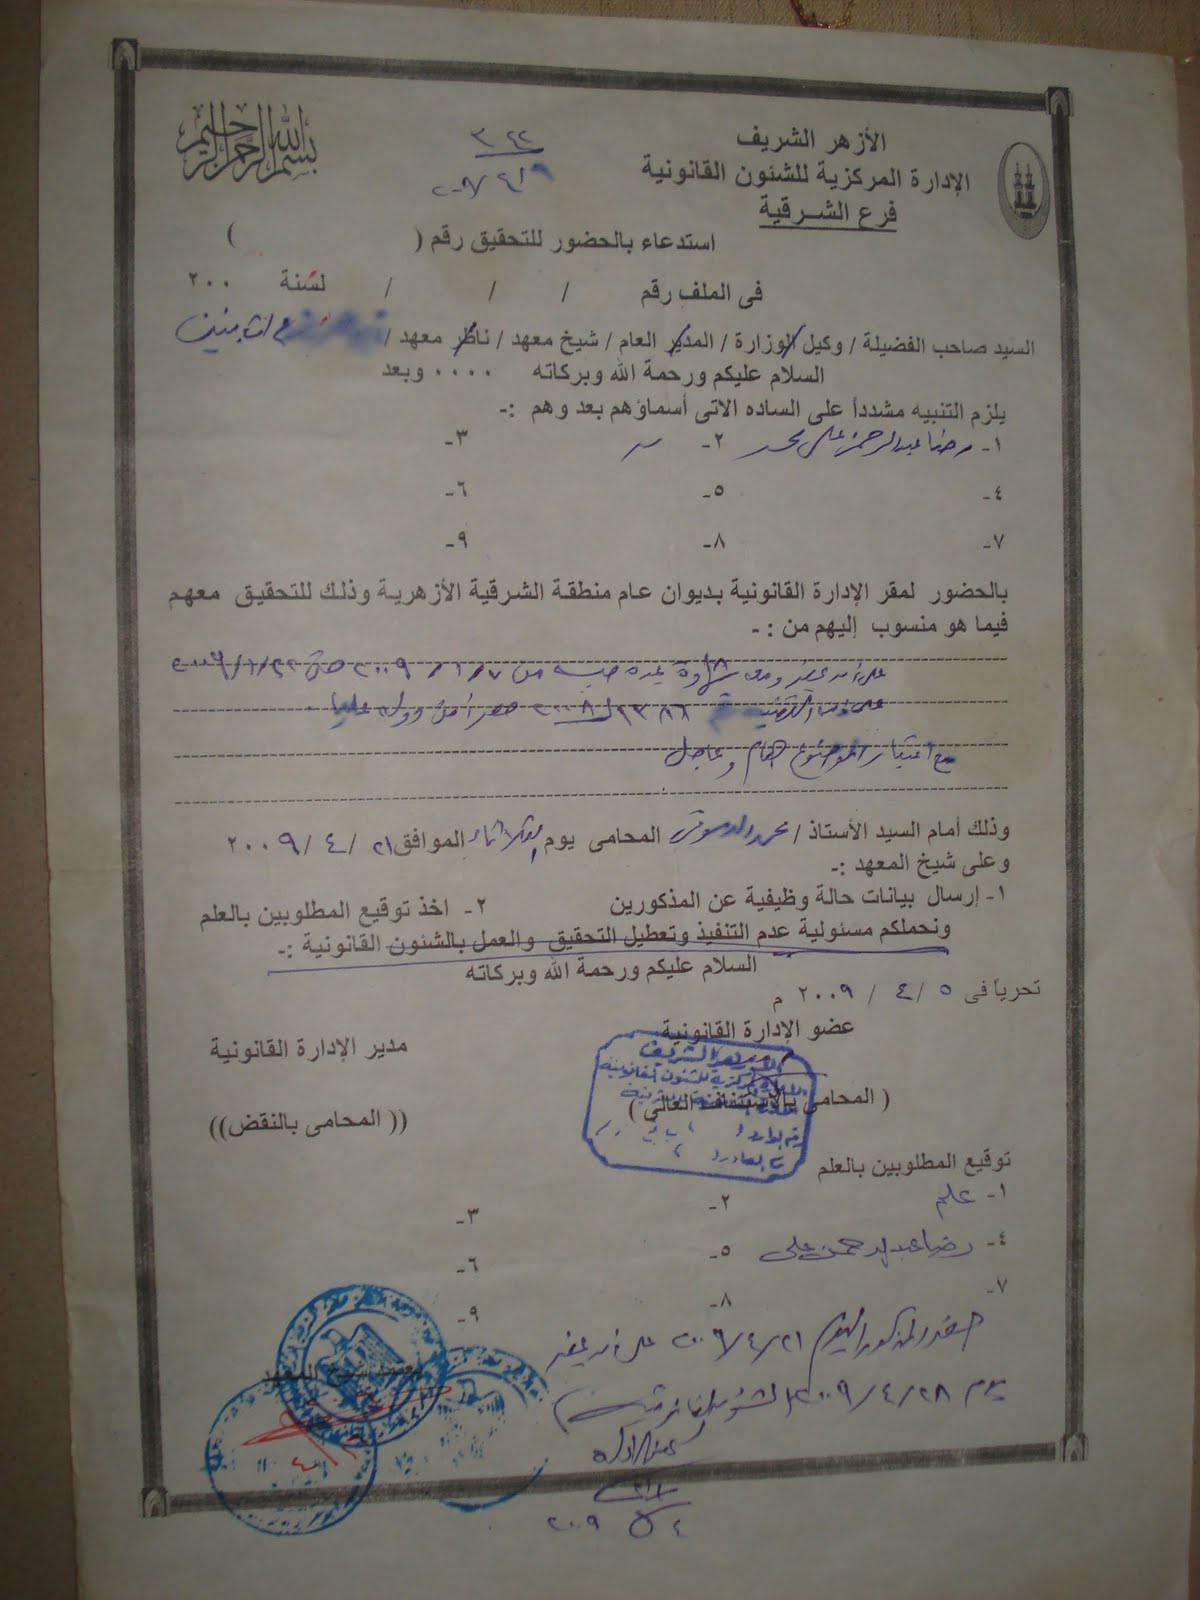 بسم الله الرحمن الرحيم
الأزهر الشريف
الإدارة المركزية للشئون القانونية
فرع الشرقية
٣٤٢
استدعاء بالحضور للتحقيق رقم ( )
فى الملف رقم / / / لسنة ٢٠٠
السيد صاحب الفضيلة / وكيل الوزارة / المدير العام / شيخ معهد / ناظر معهد /
السلام عليكم ورحمة الله وبركاته ٠٠٠٠ وبعد
يلزم التنبيه مشدداً على الساده الاتى أسماؤهم بعد وهم :-
١- رضا عبدالرحمن على محمد ٢- ٣-
٤- ٥- ٦-
٧- ٨- ٩-
بالحضور لمقر الإدارة القانونية بديوان عام منطقة الشرقية الأزهرية وذلك للتحقيق معهم
فيما هو منسوب إليهم من :-
على أن يحضر ومعه مدة حبسه من ٧/١/٢٠٠٩ حتى ٢٢/١/٢٠٠٩
على ذمة القضية ١٣٨٦ لسنة ٢٠٠٨ حصر أمن دولة عليا
مع اعتبار الموضوع هام وعاجل
وذلك أمام السيد الأستاذ / محمد الدسوقى المحامى يوم الثلاثاء الموافق ٢١/ ٤ / ٢٠٠٩
وعلى شيخ المعهد :-
١- إرسال بيانات حالة وظيفية عن المذكورين ٢- اخذ توقيع المطلوبين بالعلم
ونحملكم مسئولية عدم التنفيذ وتعطيل التحقيق والعمل بالشئون القانونية :-
السلام عليكم ورحمة الله وبركاته
تحرياً فى ٥ / ٤ / ٢٠٠٩ م
عضو الإدارة القانونية
مدير الإدارة القانونية
الأزهر الشريف
( المحامى بالاستئناف العالى )
(( المحامى بالنقض))
توقيع المطلوبين بالعلم
١- علم ٢- ٣-
٤- رضا عبدالرحمن على ٥- ٦-
٧- ٨- ٩-
حضر المذكور اليوم ٢١/٤/٢٠٠٩ على أن يحضر
يوم ٢٨/٤/٢٠٠٩ الشئون القانونية
يعتمد شيخ المعهد